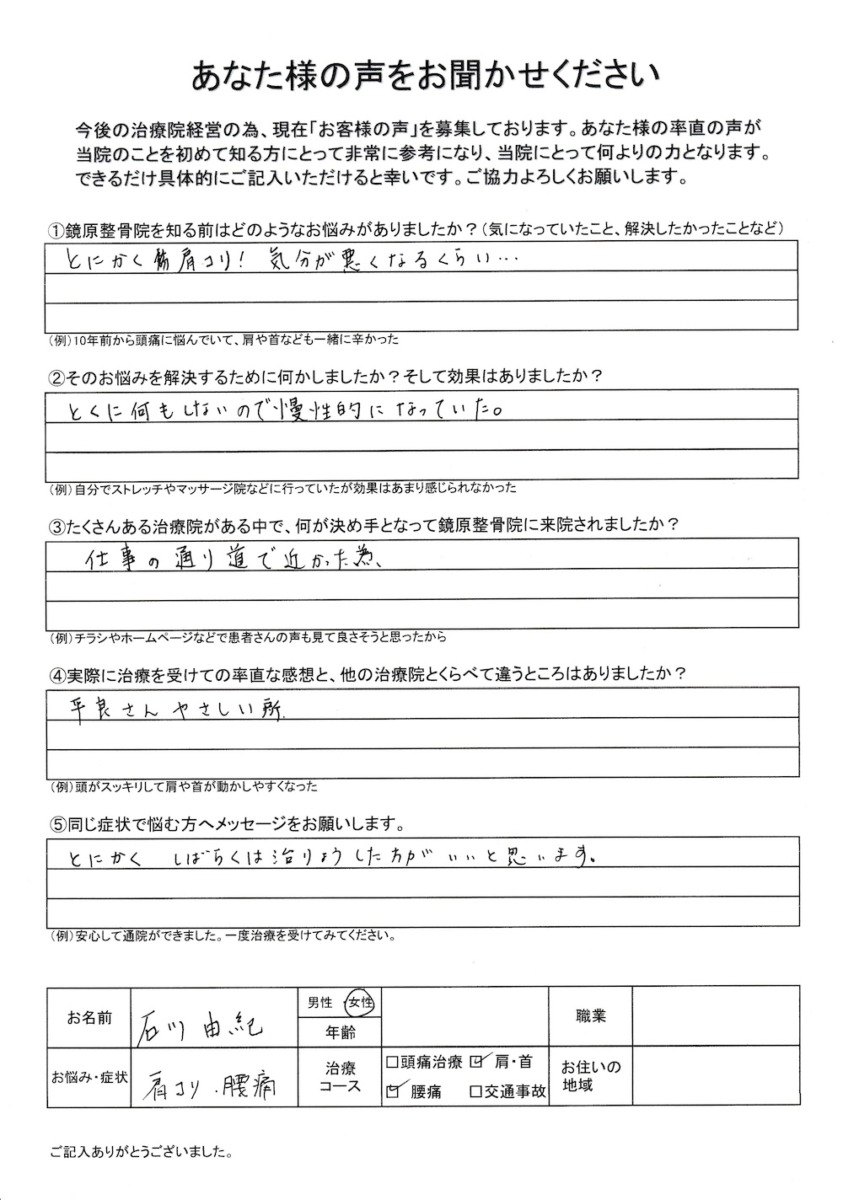 あなた様の声をお聞かせください
今後の治療院経営の為、現在「お客様の声」を募集しております。あなた様の率直の声が
当院のことを初めて知る方にとって非常に参考になり、当院にとって何よりの力となります。
できるだけ具体的にご記入いただけると幸いです。ご協力よろしくお願いします。
①鏡原整骨院を知る前はどのようなお悩みがありましたか？（気になっていたこと、解決したかったことなど）
とにかく肩コリ！ 気分が悪くなるくらい…
（例）10年前から頭痛に悩んでいて、肩や首なども一緒に辛かった
②そのお悩みを解決するために何かしましたか？そして効果はありましたか？
とくに何もしないので慢性的になっていた。
（例）自分でストレッチやマッサージ院などに行っていたが効果はあまり感じられなかった
③たくさんある治療院がある中で、何が決め手となって鏡原整骨院に来院されましたか？
仕事の通り道で近かった為、
（例）チラシやホームページなどで患者さんの声も見て良さそうと思ったから
④実際に治療を受けての率直な感想と、他の治療院とくらべて違うところはありましたか？
平良さんやさしい所.
（例）頭がスッキリして肩や首が動かしやすくなった
⑤同じ症状で悩む方へメッセージをお願いします。
とにかく しばらくは治りょうした方がいいと思います。
（例）安心して通院ができました。一度治療を受けてみてください。
お名前 石川 由紀 男性・女性 職業
年齢
お悩み・症状 肩コリ・腰痛 治療コース □頭痛治療 ☑肩・首 お住いの地域
☑腰痛 □交通事故
ご記入ありがとうございました。